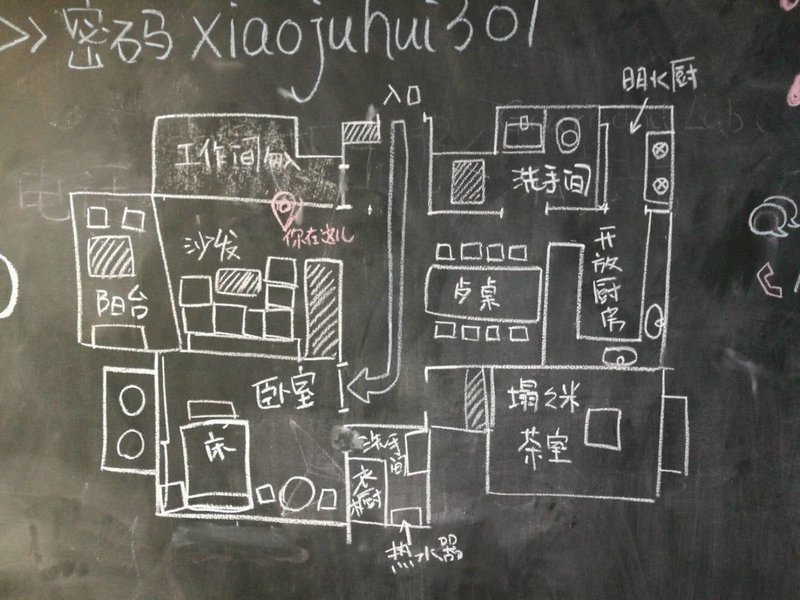 >> 密码 xiaojuhui301
明火厨
入口
工作间
洗手间
你在这儿
沙发
开放厨房
阳台
卧室
塌々米
茶室
床
洗手间
衣橱
热水器